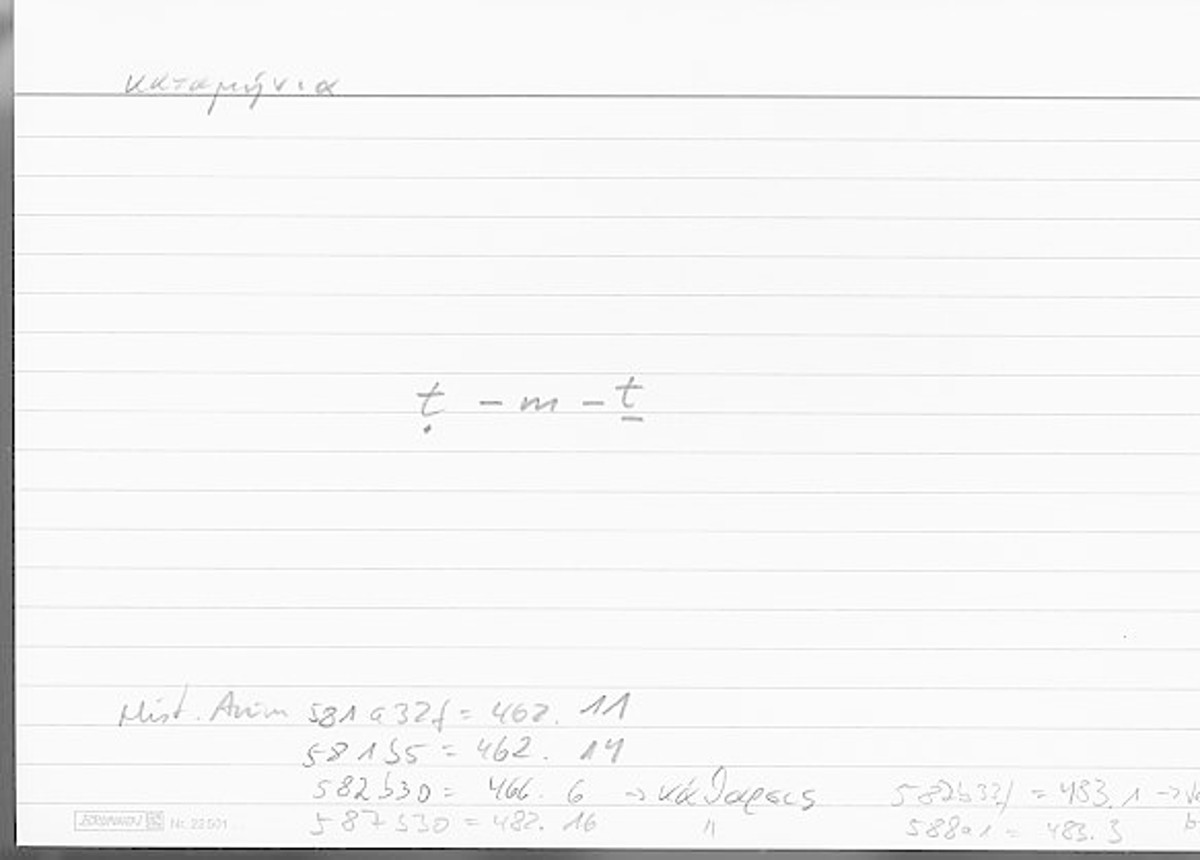 καταμήνια
ṭ - m - ṯ
Hist. Anim 581 a 32f = 462. 11
581 b5 = 462. 14
582 b30 = 466. 6 → κάθαρσις 587 b32f = 483. 1 →
587 b30 = 482. 16 " 588a1 = 483. 3
BRUNNEN Nr. 22 501